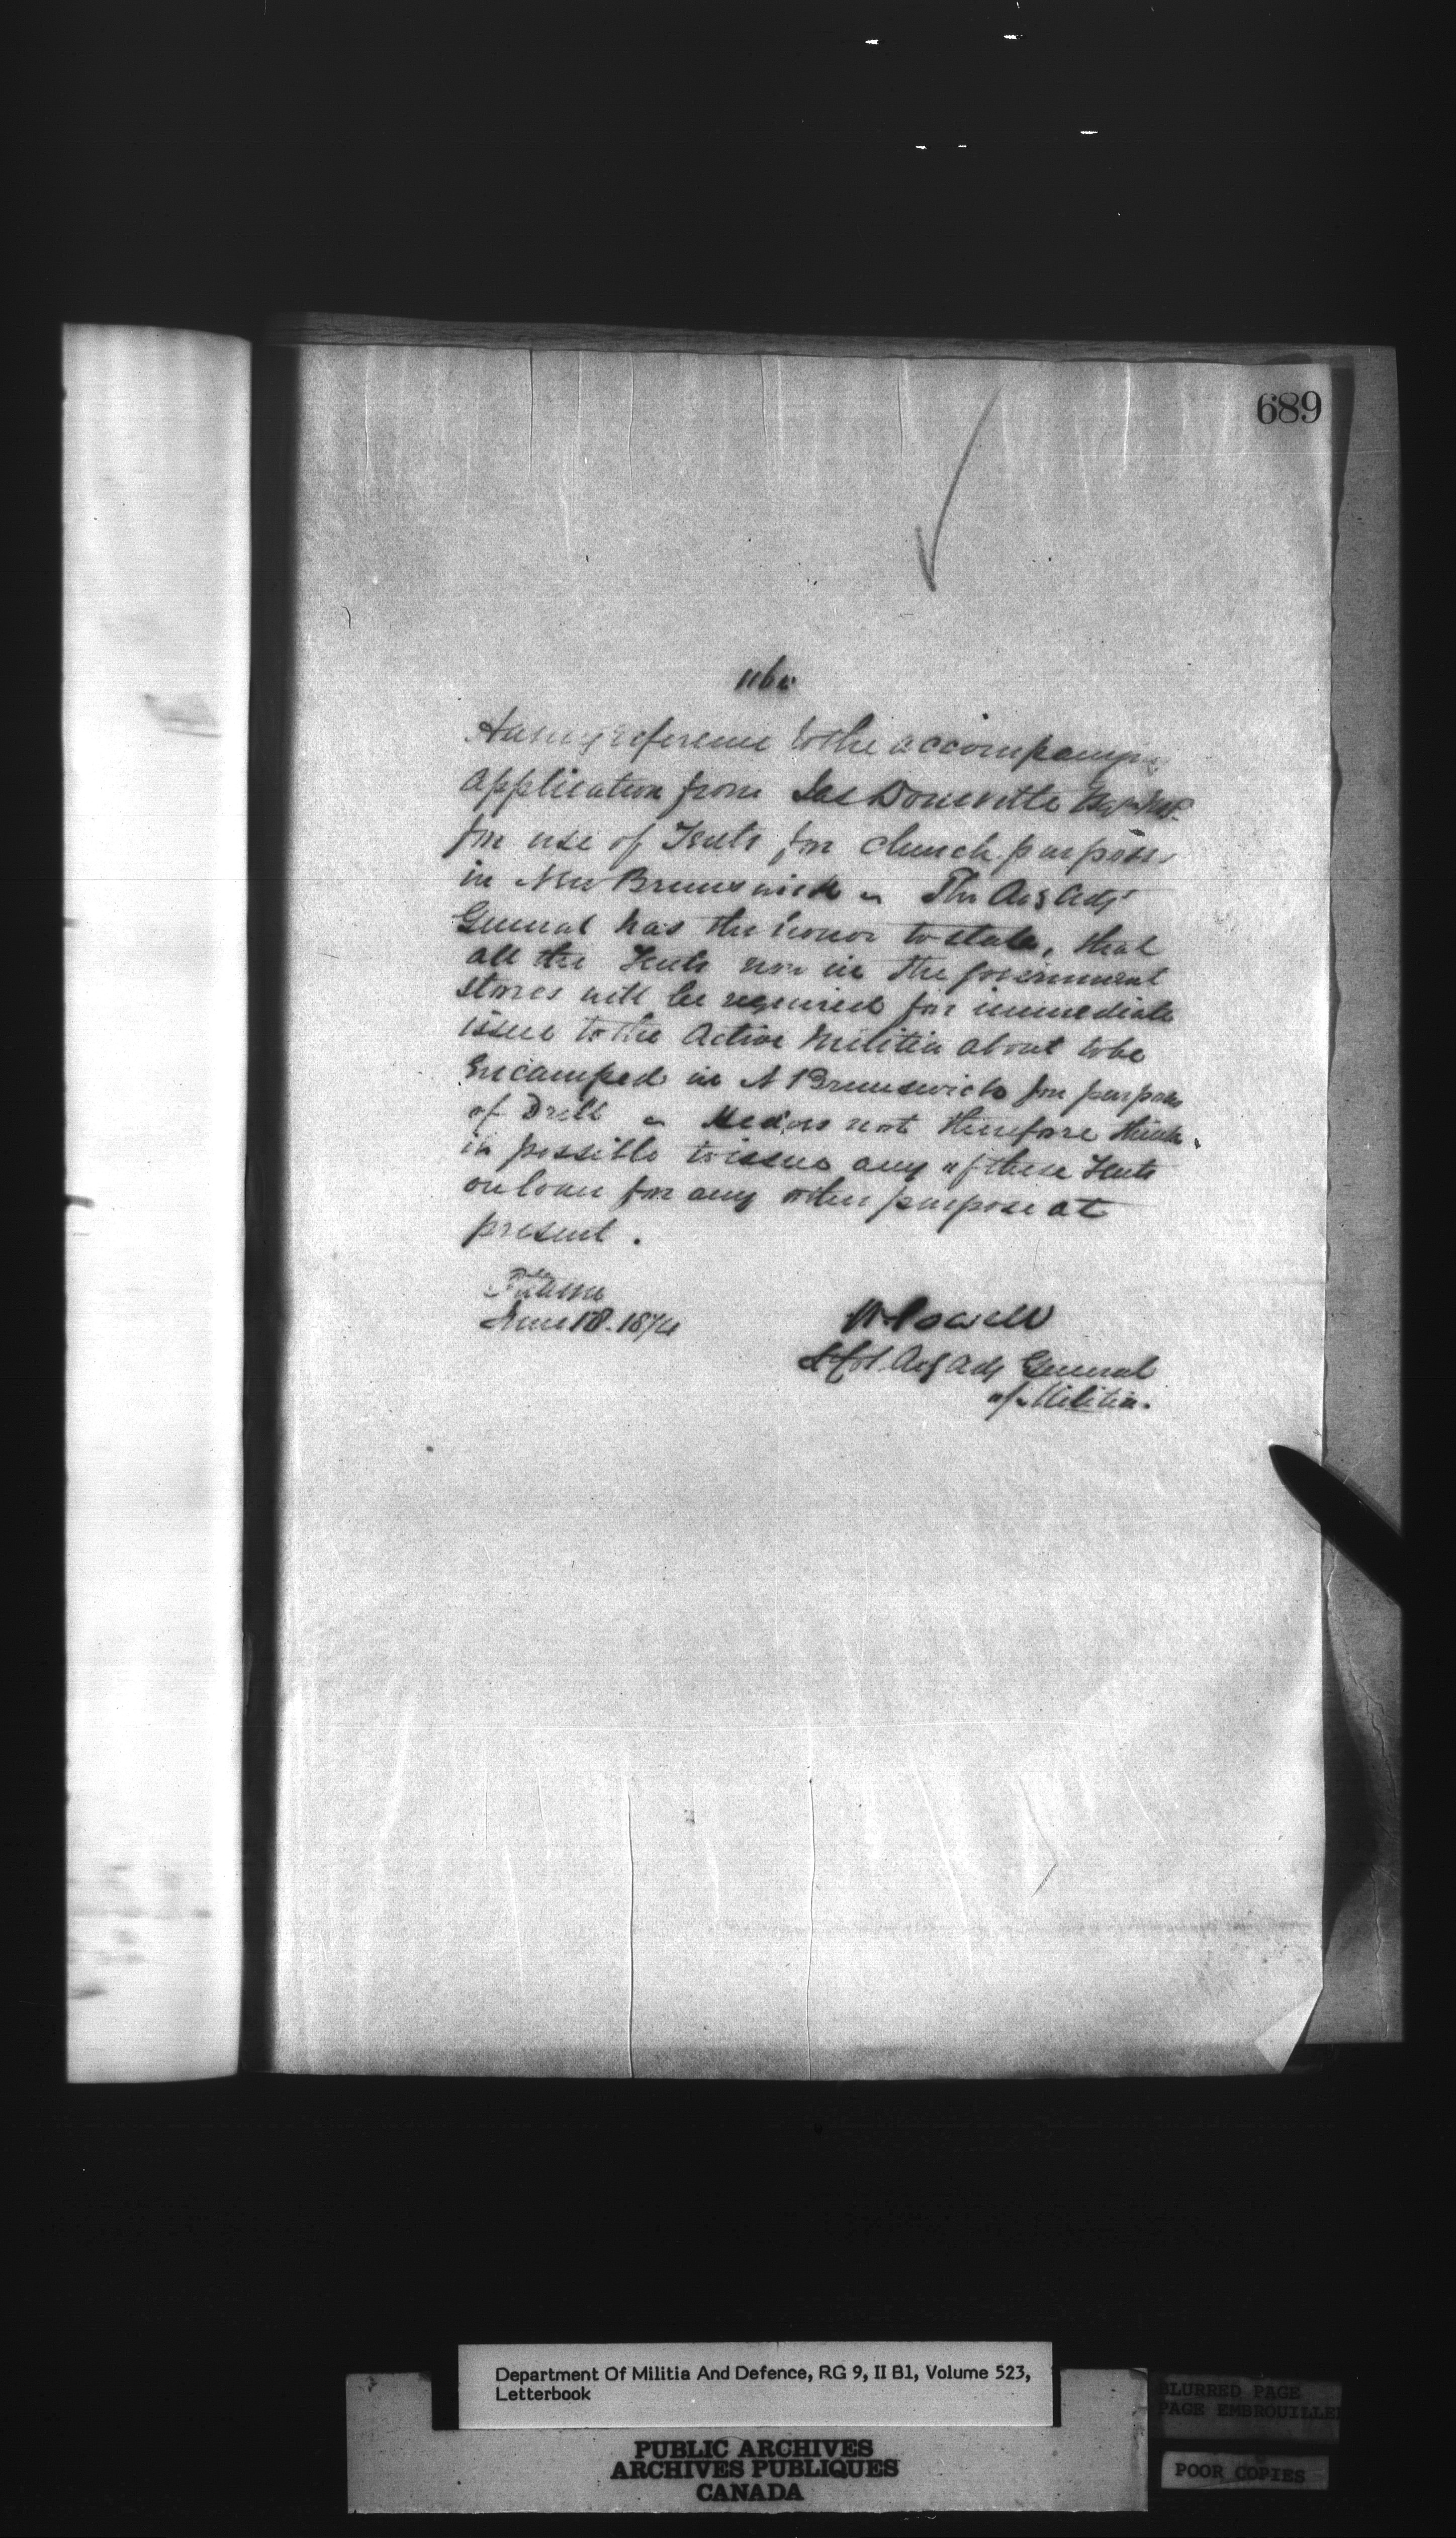 689
Having reference to the accompanying
application from Jas Domville Esqr MP.
for use of Tents for church purposes
in New Brunswick The Actg Adjt
General has the honor to state, that
all the Tents now in the Government
stores will be required for immediate
issue to the Active Militia about to be
Encamped in N Brunswick for purposes
of Drill He does not therefore think
it possible to issue any of these Tents
on loan for any other purpose at
present.
Ottawa
June 18. 1874
W Powell
Lt Col. Actg Adj General
of Militia.
Department Of Militia And Defence, RG 9, II B1, Volume 523,
Letterbook
PUBLIC ARCHIVES
ARCHIVES PUBLIQUES
CANADA
BLURRED PAGE
PAGE EMBROUILLEE
POOR COPIES